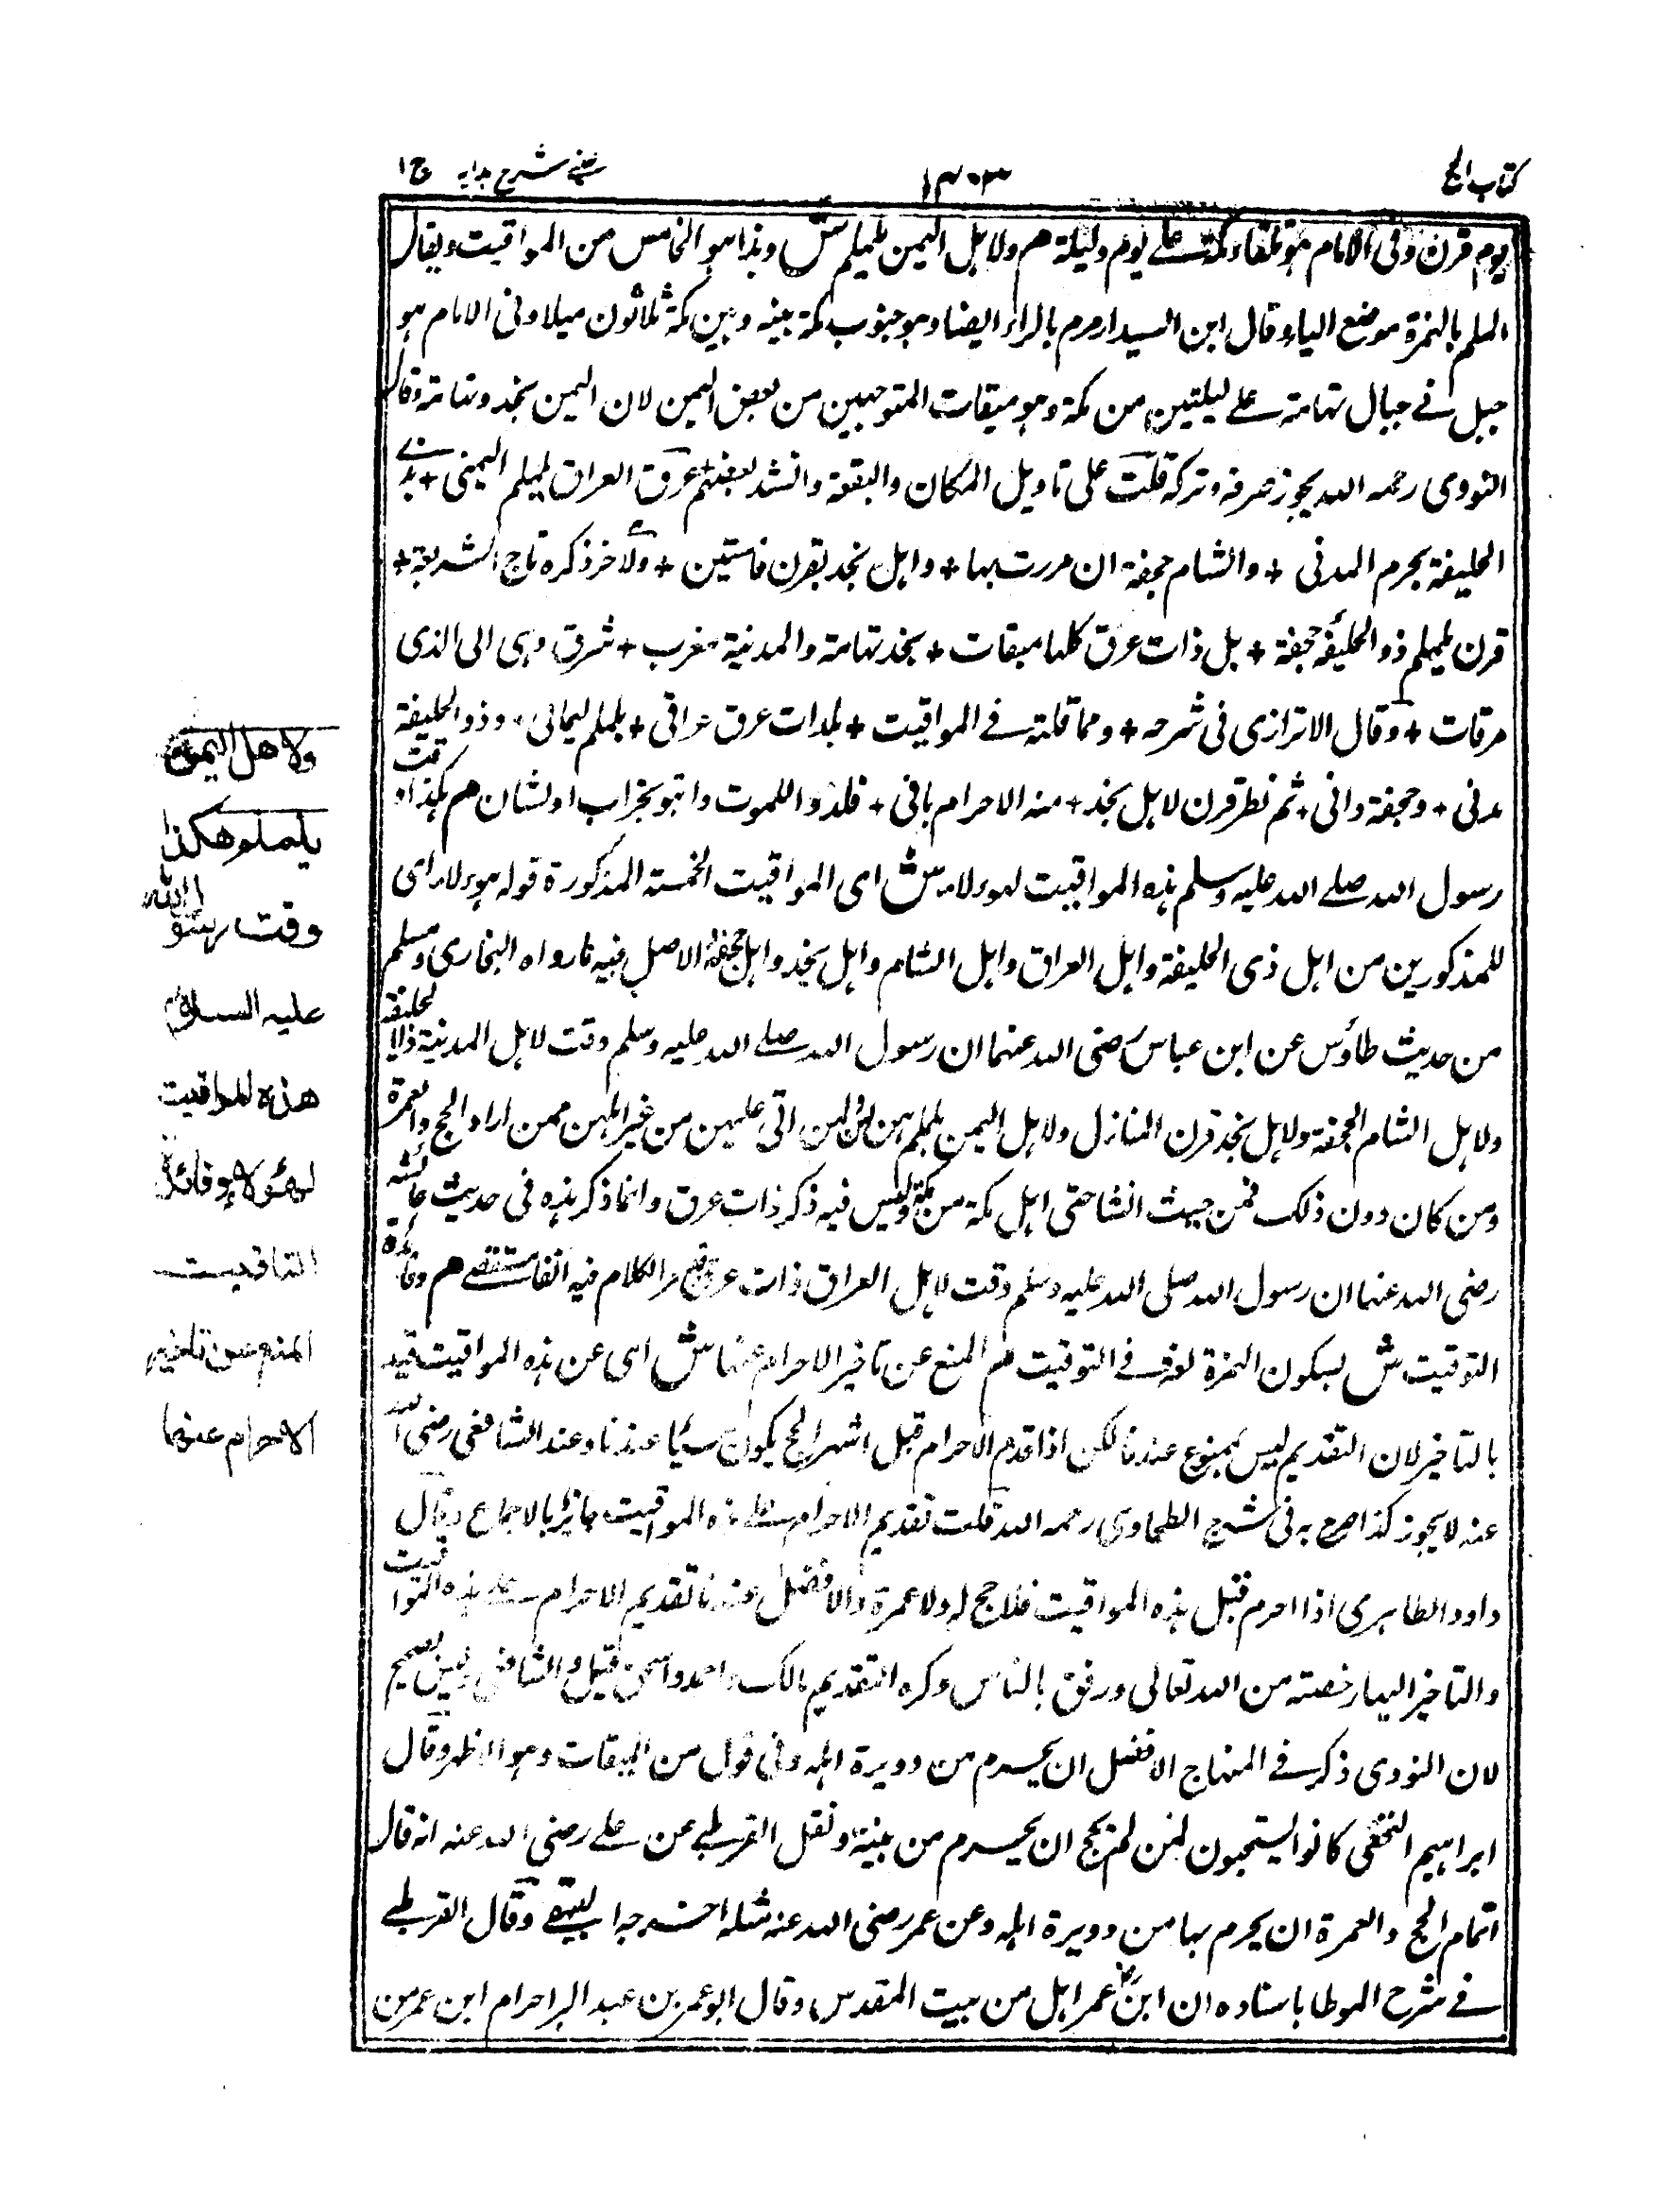 كتاب الحج
١٣٠٣
عيني شرح هدايه ج ١
يوم قرن وفى الامام هو تلقاء مكة على يوم وليلة هم ولاهل اليمن يلملم ش وهذا هو الخامس من المواقيت ويقال
الملم بالهمزة موضع الياء وقال ابن السيد ارمرم بالراء ايضا وهو جنوب مكة بينه وبين مكة ثلاثون ميلا وفى الامام هو
جبل فى جبال تهامة على ليلتين من مكة وهو ميقات المتوجهين من بعض اليمن لان اليمن نجد وتهامة وقال
النووى رحمه الله يجوز صرفه وتركه قلت على تاويل المكان والبقعة وانشد بعضهم عرق العراق يلملم اليمنى + بذى
الحليفة يحرم المدنى + والشام جحفة ان مررت بها + واهل نجد بقرن فاستبن + ولآخر ذكره تاج الشريعة +
قرن يلملم ذو الحليفة جحفة + بل ذات عرق كلها ميقات + نجد تهامة والمدينة مغرب + شرق وهى الى الذى
مرقات + وقال الاترازى فى شرحه + ومما قلته فى المواقيت + بلدات عرق عراقى + يلملم ليمانى + وذو الحليفة
مدنى + وجحفة وانى + ثم نظر قرن لاهل نجد + منه الاحرام باقى + هم هكذا وقت
رسول الله صلى الله عليه وسلم هذه المواقيت لهؤلاء ش اى المواقيت الخمسة المذكورة قوله هؤلاء اى
للمذكورين من اهل ذى الحليفة واهل العراق واهل الشام واهل نجد واهل جحفة الاصل فيه ما رواه البخارى ومسلم
من حديث طاؤس عن ابن عباس رضى الله عنهما ان رسول الله صلى الله عليه وسلم وقت لاهل المدينة ذا الحليفة
ولاهل الشام الجحفة ولاهل نجد قرن المنازل ولاهل اليمن يلملم هن لهن ولمن اتى عليهن من غير اهلهن ممن اراد الحج والعمرة
ومن كان دون ذلك فمن حيث انشا حتى اهل مكة من مكة وليس فيه ذكر ذات عرق وانما ذكر هذه فى حديث عائشه
رضى الله عنها ان رسول الله صلى الله عليه وسلم وقت لاهل العراق ذات عرق مر الكلام فيه آنفا مستقصى هم وفائدة
التوقيت ش بسكون الهمزة لغة فى التوقيت هم المنع عن تاخير الاحرام عنها ش اى عن هذه المواقيت قيد
بالتاخير لان التقديم ليس بممنوع عندنا لكن اذا قدم الاحرام قبل اشهر الحج يكون مسيئا عندنا وعند الشافعى رضى الله
عنه لا يجوز كذا صرح به فى شرح الطحاوى رحمه الله قلت تقديم الاحرام على هذه المواقيت جائز بالاجماع وقال
داود الظاهرى اذا احرم قبل هذه المواقيت فلا حج له ولا عمرة والافضل عندنا تقديم الاحرام على هذه المواقيت
والتاخير اليها رخصة من الله تعالى ورفق بالناس وكره التقديم مالك واحمد واسحق قيل والشافعى وليس بصحيح
لان النووى ذكر فى المنهاج الافضل ان يحرم من دويرة اهله وفى قول من الميقات وهو الاظهر وقال
ابراهيم النخعى كانوا يستحبون لمن لم يحج ان يحرم من بيته ونقل القرطبى عن على رضى الله عنه انه قال
اتمام الحج والعمرة ان يحرم بها من دويرة اهله وعن عمر رضى الله عنه مثله اخرجها البيهقى وقال القرطبى
فى شرح الموطا باسناده ان ابن عمر اهل من بيت المقدس وقال ابو عمر بن عبد البر احرام ابن عمر من
ولاهل اليمن
يلملم هكذا
وقت رسول الله
عليه السلام
هذه المواقيت
لهؤلاء وفائدة
التاقيت
المنع عن تاخير
الاحرام عنها